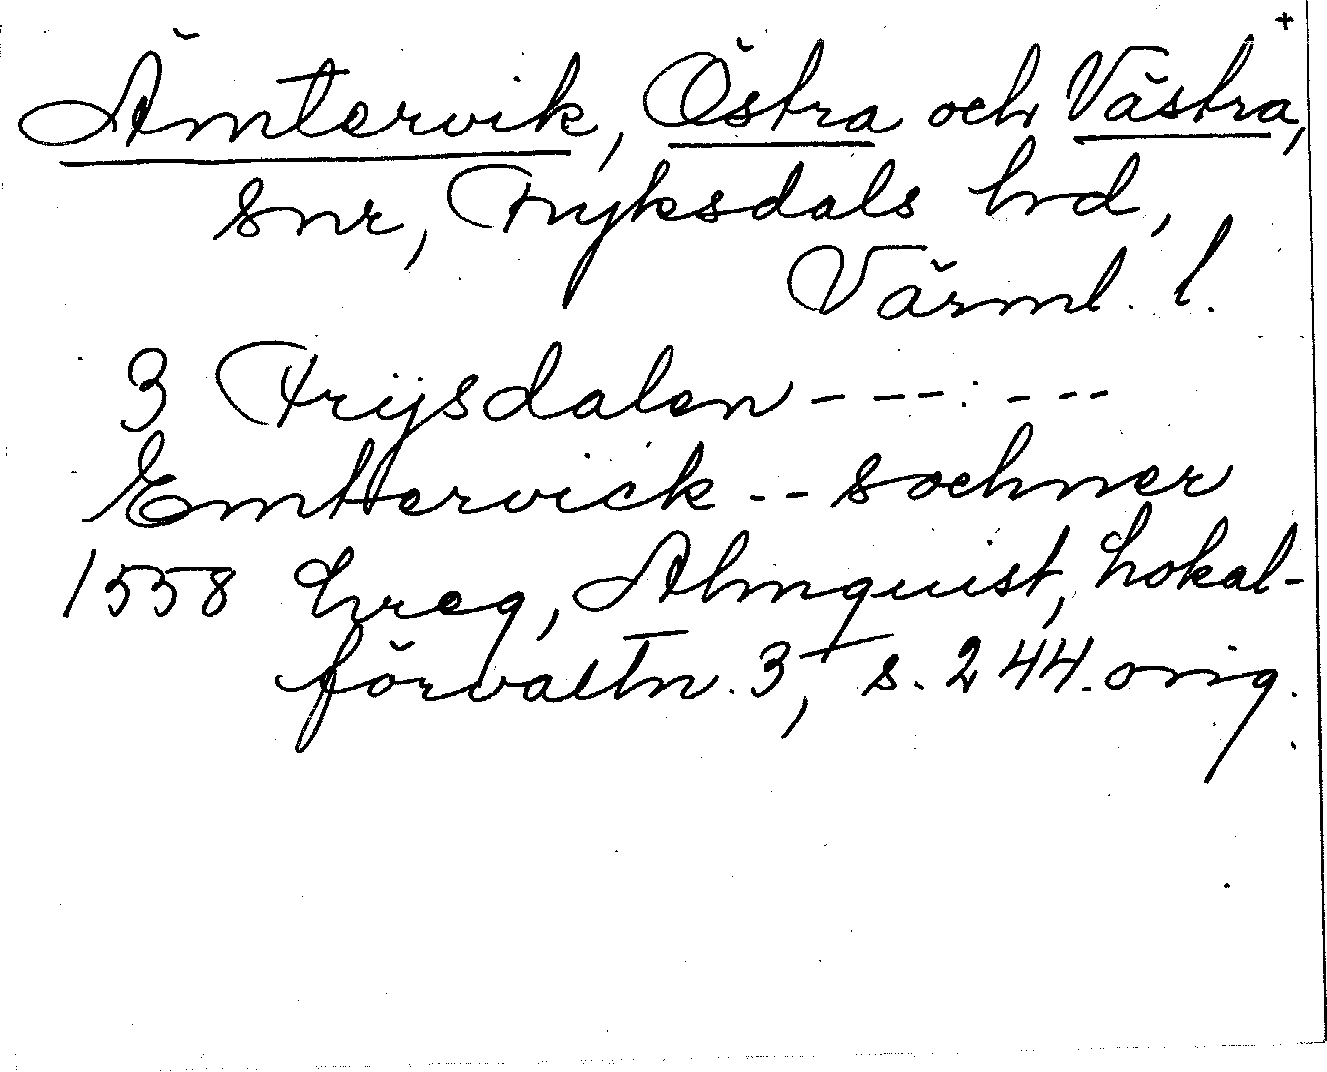 +
Ämtervik, Östra och Västra,
snr, Fryksdals hd,
Värml. l.
3 Frijsdalen - - - - : - - -
Emttervick - - sochner
1558 hreg, Almquist, Lokal-
förvaltn. 3, s. 244. orig.